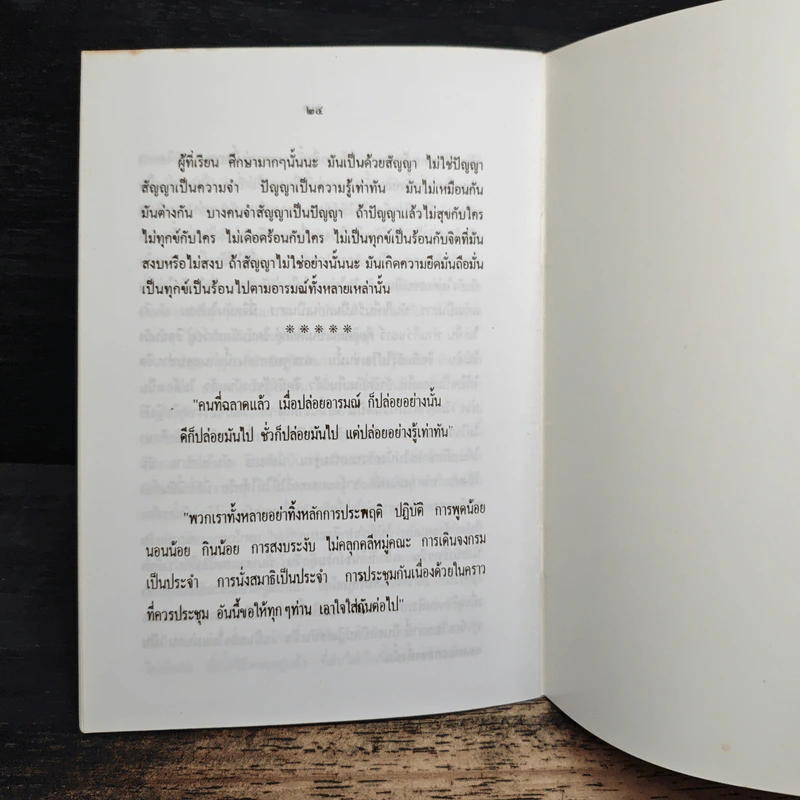 ๒๔
ผู้ที่เรียน ศึกษามากๆนั้นนะ มันเป็นด้วยสัญญา ไม่ใช่ปัญญา
สัญญาเป็นความจำ ปัญญาเป็นความรู้เท่าทัน มันไม่เหมือนกัน
มันต่างกัน บางคนจำสัญญาเป็นปัญญา ถ้าปัญญาแล้วไม่สุขกับใคร
ไม่ทุกข์กับใคร ไม่เดือดร้อนกับใคร ไม่เป็นทุกข์เป็นร้อนกับจิตที่มัน
สงบหรือไม่สงบ ถ้าสัญญาไม่ใช่อย่างนั้นนะ มันเกิดความยึดมั่นถือมั่น
เป็นทุกข์เป็นร้อนไปตามอารมณ์ทั้งหลายเหล่านั้น
* * * * *
"คนที่ฉลาดแล้ว เมื่อปล่อยอารมณ์ ก็ปล่อยอย่างนั้น
ดีก็ปล่อยมันไป ชั่วก็ปล่อยมันไป แต่ปล่อยอย่างรู้เท่าทัน"
"พวกเราทั้งหลายอย่าทิ้งหลักการประพฤติ ปฏิบัติ การพูดน้อย
นอนน้อย กินน้อย การสงบระงับ ไม่คลุกคลีหมู่คณะ การเดินจงกรม
เป็นประจำ การนั่งสมาธิเป็นประจำ การประชุมกันเนื่องด้วยในคราว
ที่ควรประชุม อันนี้ขอให้ทุกๆท่าน เอาใจใส่กันต่อไป"